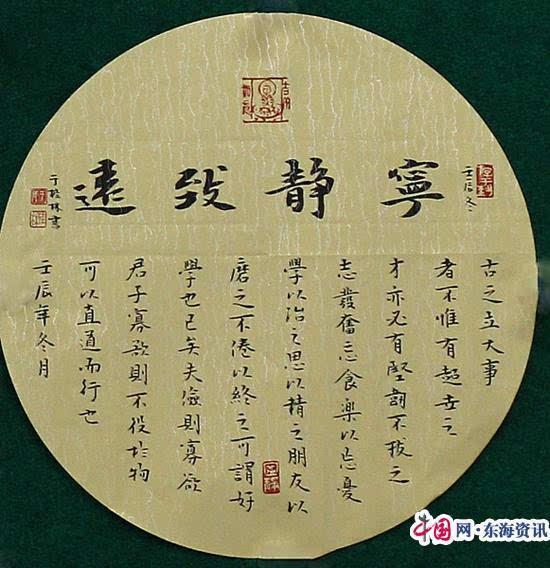 壬辰冬
寧靜致遠
書
古之立大事
者不惟有超世之
才亦必有堅韌不拔之
志發奮忘食樂以忘憂
學以治之思以精之朋友以
磨之不倦以終之可謂好
學也已矣夫儉則寡欲
君子寡欲則不役於物
可以直道而行也
壬辰年冬月
中国网·东海资讯